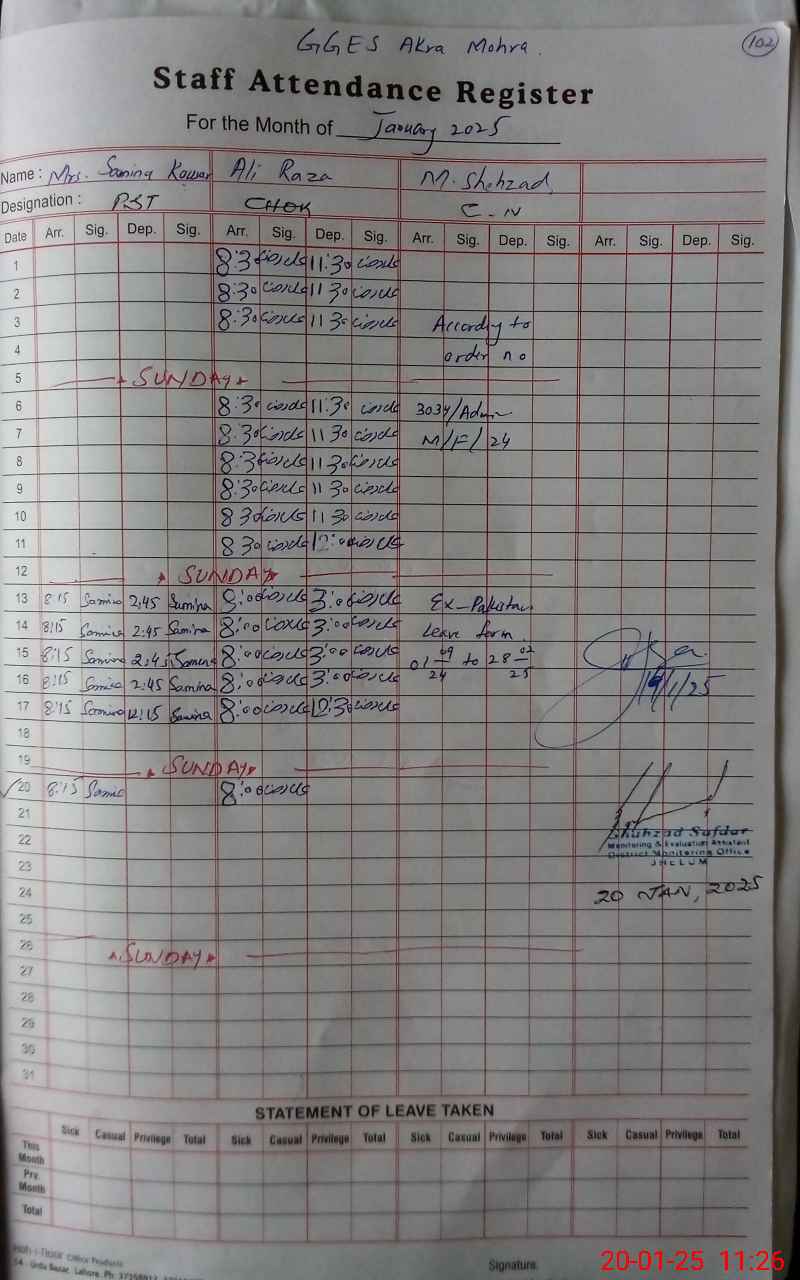 GGES Akra Mohra.
102
Staff Attendance Register
For the Month of January 2025
Name : Mrs. Samina Kowsar Ali Raza M. Shehzad
Designation : PST CHOK C-IV
Date Arr. Sig. Dep. Sig. Arr. Sig. Dep. Sig. Arr. Sig. Dep. Sig. Arr. Sig. Dep. Sig.
1 8:30 11:30
2 8:30 11 30
3 8:30 11 30 According to
4 order no
5 SUNDAY
6 8:30 11:30 3034/Admn
7 8:30 11 30 M/F/24
8 8:30 11:30
9 8:30 11 30
10 8 30 11 30
11 8 30 12:00
12 SUNDAY
13 8:15 Samina 2:45 Samina 8:00 3:00 Ex-Pakistan
14 8:15 Samina 2:45 Samina 8:00 3:00 Leave form
15 8:15 Samina 2:45 Samina 8:00 3:00 01 09/24 to 28 02/25
16 8:15 Samina 2:45 Samina 8:00 3:00 /1/25
17 8:15 Samina 12:15 Samina 8:00 12:30
18
19 SUNDAY
20 8:15 Samina 8:00
21
22 Shahzad Safdar
Monitoring & Evaluation Assistant
23 District Monitoring Office
JHELUM
24 20 JAN, 2025
25
26 SUNDAY
27
28
29
30
31
STATEMENT OF LEAVE TAKEN
Sick Casual Privilege Total Sick Casual Privilege Total Sick Casual Privilege Total Sick Casual Privilege Total
This Month
Prv. Month
Total
Office Products
Urdu Bazar, Lahore. Ph:
Signature:
20-01-25 11:26